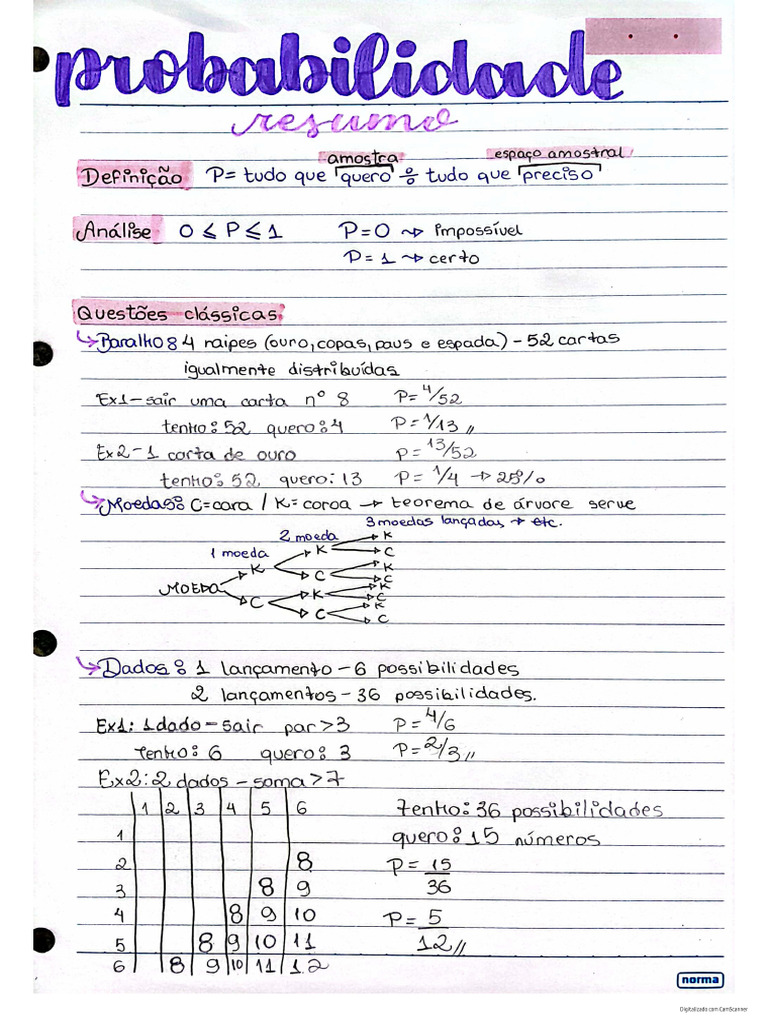 probabilidade
resumo
amostra espaço amostral
Definição P= tudo que quero ÷ tudo que preciso
Análise 0 ≤ P ≤ 1 P=0 ⇝ impossível
P= 1 ⇝ certo
Questões clássicas
↳ Baralho: 4 naipes (ouro, copas, paus e espada) - 52 cartas
igualmente distribuídas
Ex1- sair uma carta nº 8 P= 4/52
tenho: 52 quero: 4 P= 1/13 //
Ex2- 1 carta de ouro P= 13/52
tenho: 52 quero: 13 P= 1/4 → 25%
↳ Moedas: C=cara / K= coroa → teorema de árvore serve
3 moedas lançadas → etc.
2 moeda K
1 moeda K C
K K
C C
MOEDA K K
C C
C K
C
↳ Dados: 1 lançamento - 6 possibilidades
2 lançamentos - 36 possibilidades.
Ex1: 1 dado - sair par > 3 P= 4/6
tenho: 6 quero: 3 P= 2/3 //
Ex2: 2 dados - soma > 7
1 2 3 4 5 6 tenho: 36 possibilidades
1 quero: 15 números
2 8 P= 15/36
3 8 9
4 8 9 10 P= 5/12 //
5 8 9 10 11
6 8 9 10 11 12
norma
Digitalizado com CamScanner